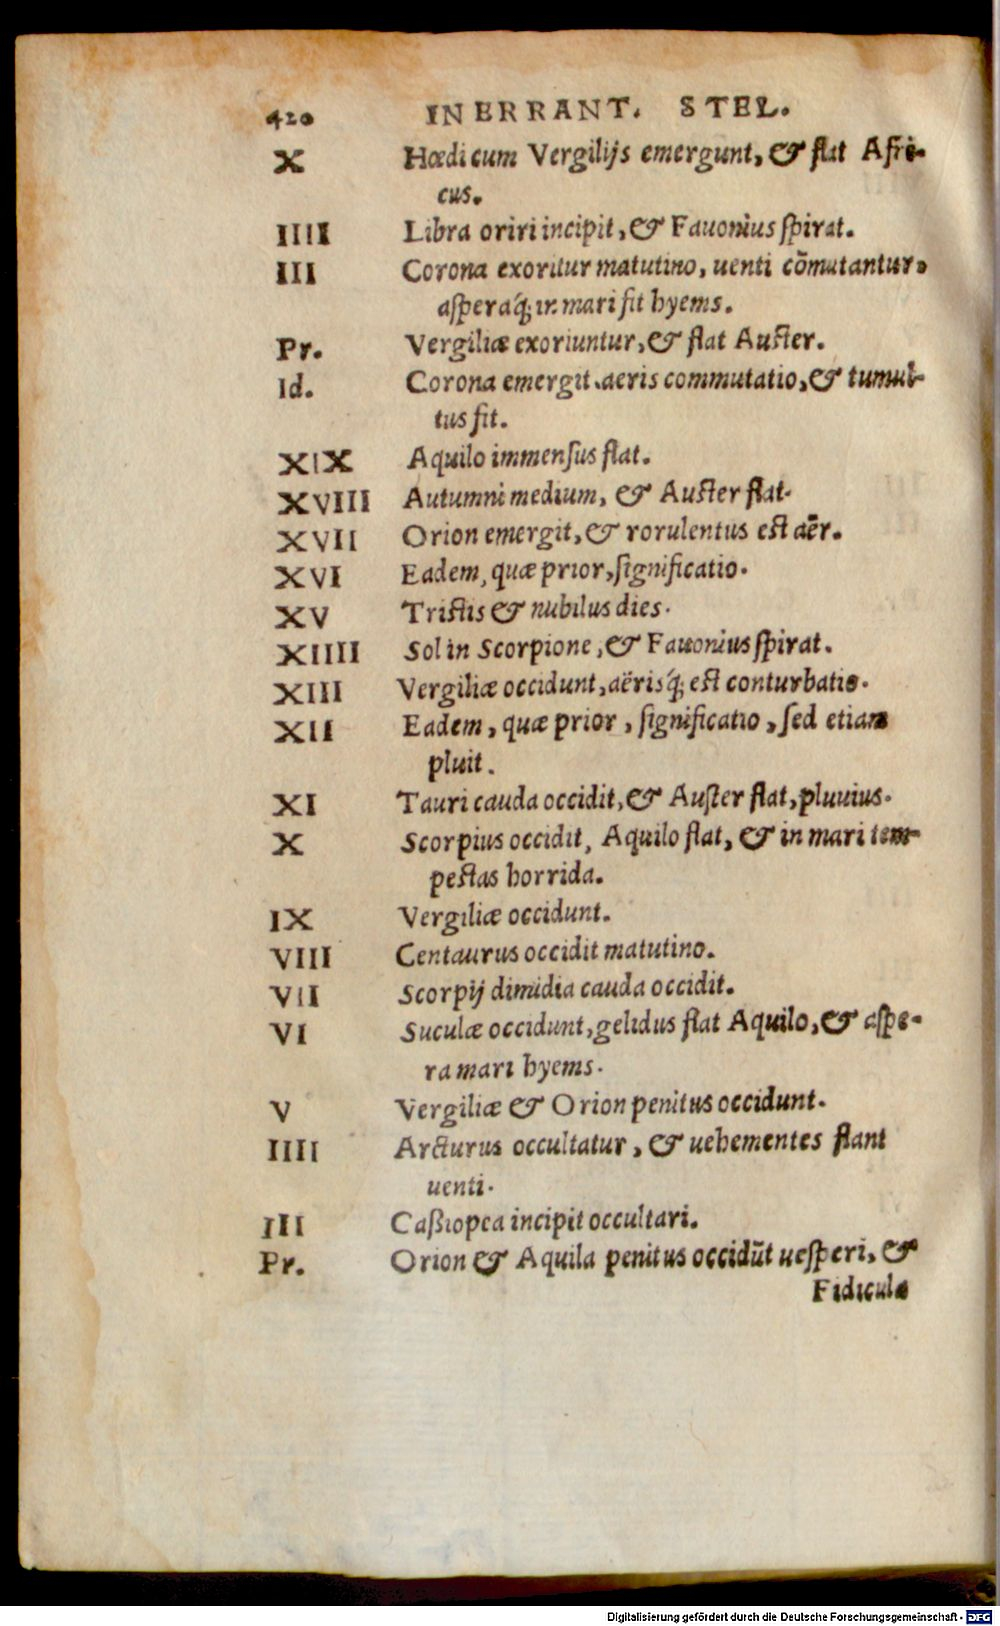 420 IN ERRANT. STEL.
X Hœdi cum Vergilijs emergunt, & flat Afri-
cus.
IIII Libra oriri incipit, & Fauonius ſpirat.
III Corona exoritur matutino, uenti cõmutantur,
aſperaq́; in mari fit hyems.
Pr. Vergiliæ exoriuntur, & flat Auſter.
Id. Corona emergit, aeris commutatio, & tumul-
tus fit.
XIX Aquilo immenſus flat.
XVIII Autumni medium, & Auſter flat.
XVII Orion emergit, & rorulentus eſt aër.
XVI Eadem, quæ prior, ſignificatio.
XV Triſtis & nubilus dies.
XIIII Sol in Scorpione, & Fauonius ſpirat.
XIII Vergiliæ occidunt, aërisq́; eſt conturbatio.
XII Eadem, quæ prior, ſignificatio, ſed etiam
pluit.
XI Tauri cauda occidit, & Auſter flat, pluuius.
X Scorpius occidit, Aquilo flat, & in mari tem-
peſtas horrida.
IX Vergiliæ occidunt.
VIII Centaurus occidit matutino.
VII Scorpij dimidia cauda occidit.
VI Suculæ occidunt, gelidus flat Aquilo, & aſpe-
ra mari hyems.
V Vergiliæ & Orion penitus occidunt.
IIII Arcturus occultatur, & uehementes flant
uenti.
III Caßiopea incipit occultari.
Pr. Orion & Aquila penitus occidũt ueſperi, &
Fidicula
Digitalisierung gefördert durch die Deutsche Forschungsgemeinschaft - DFG